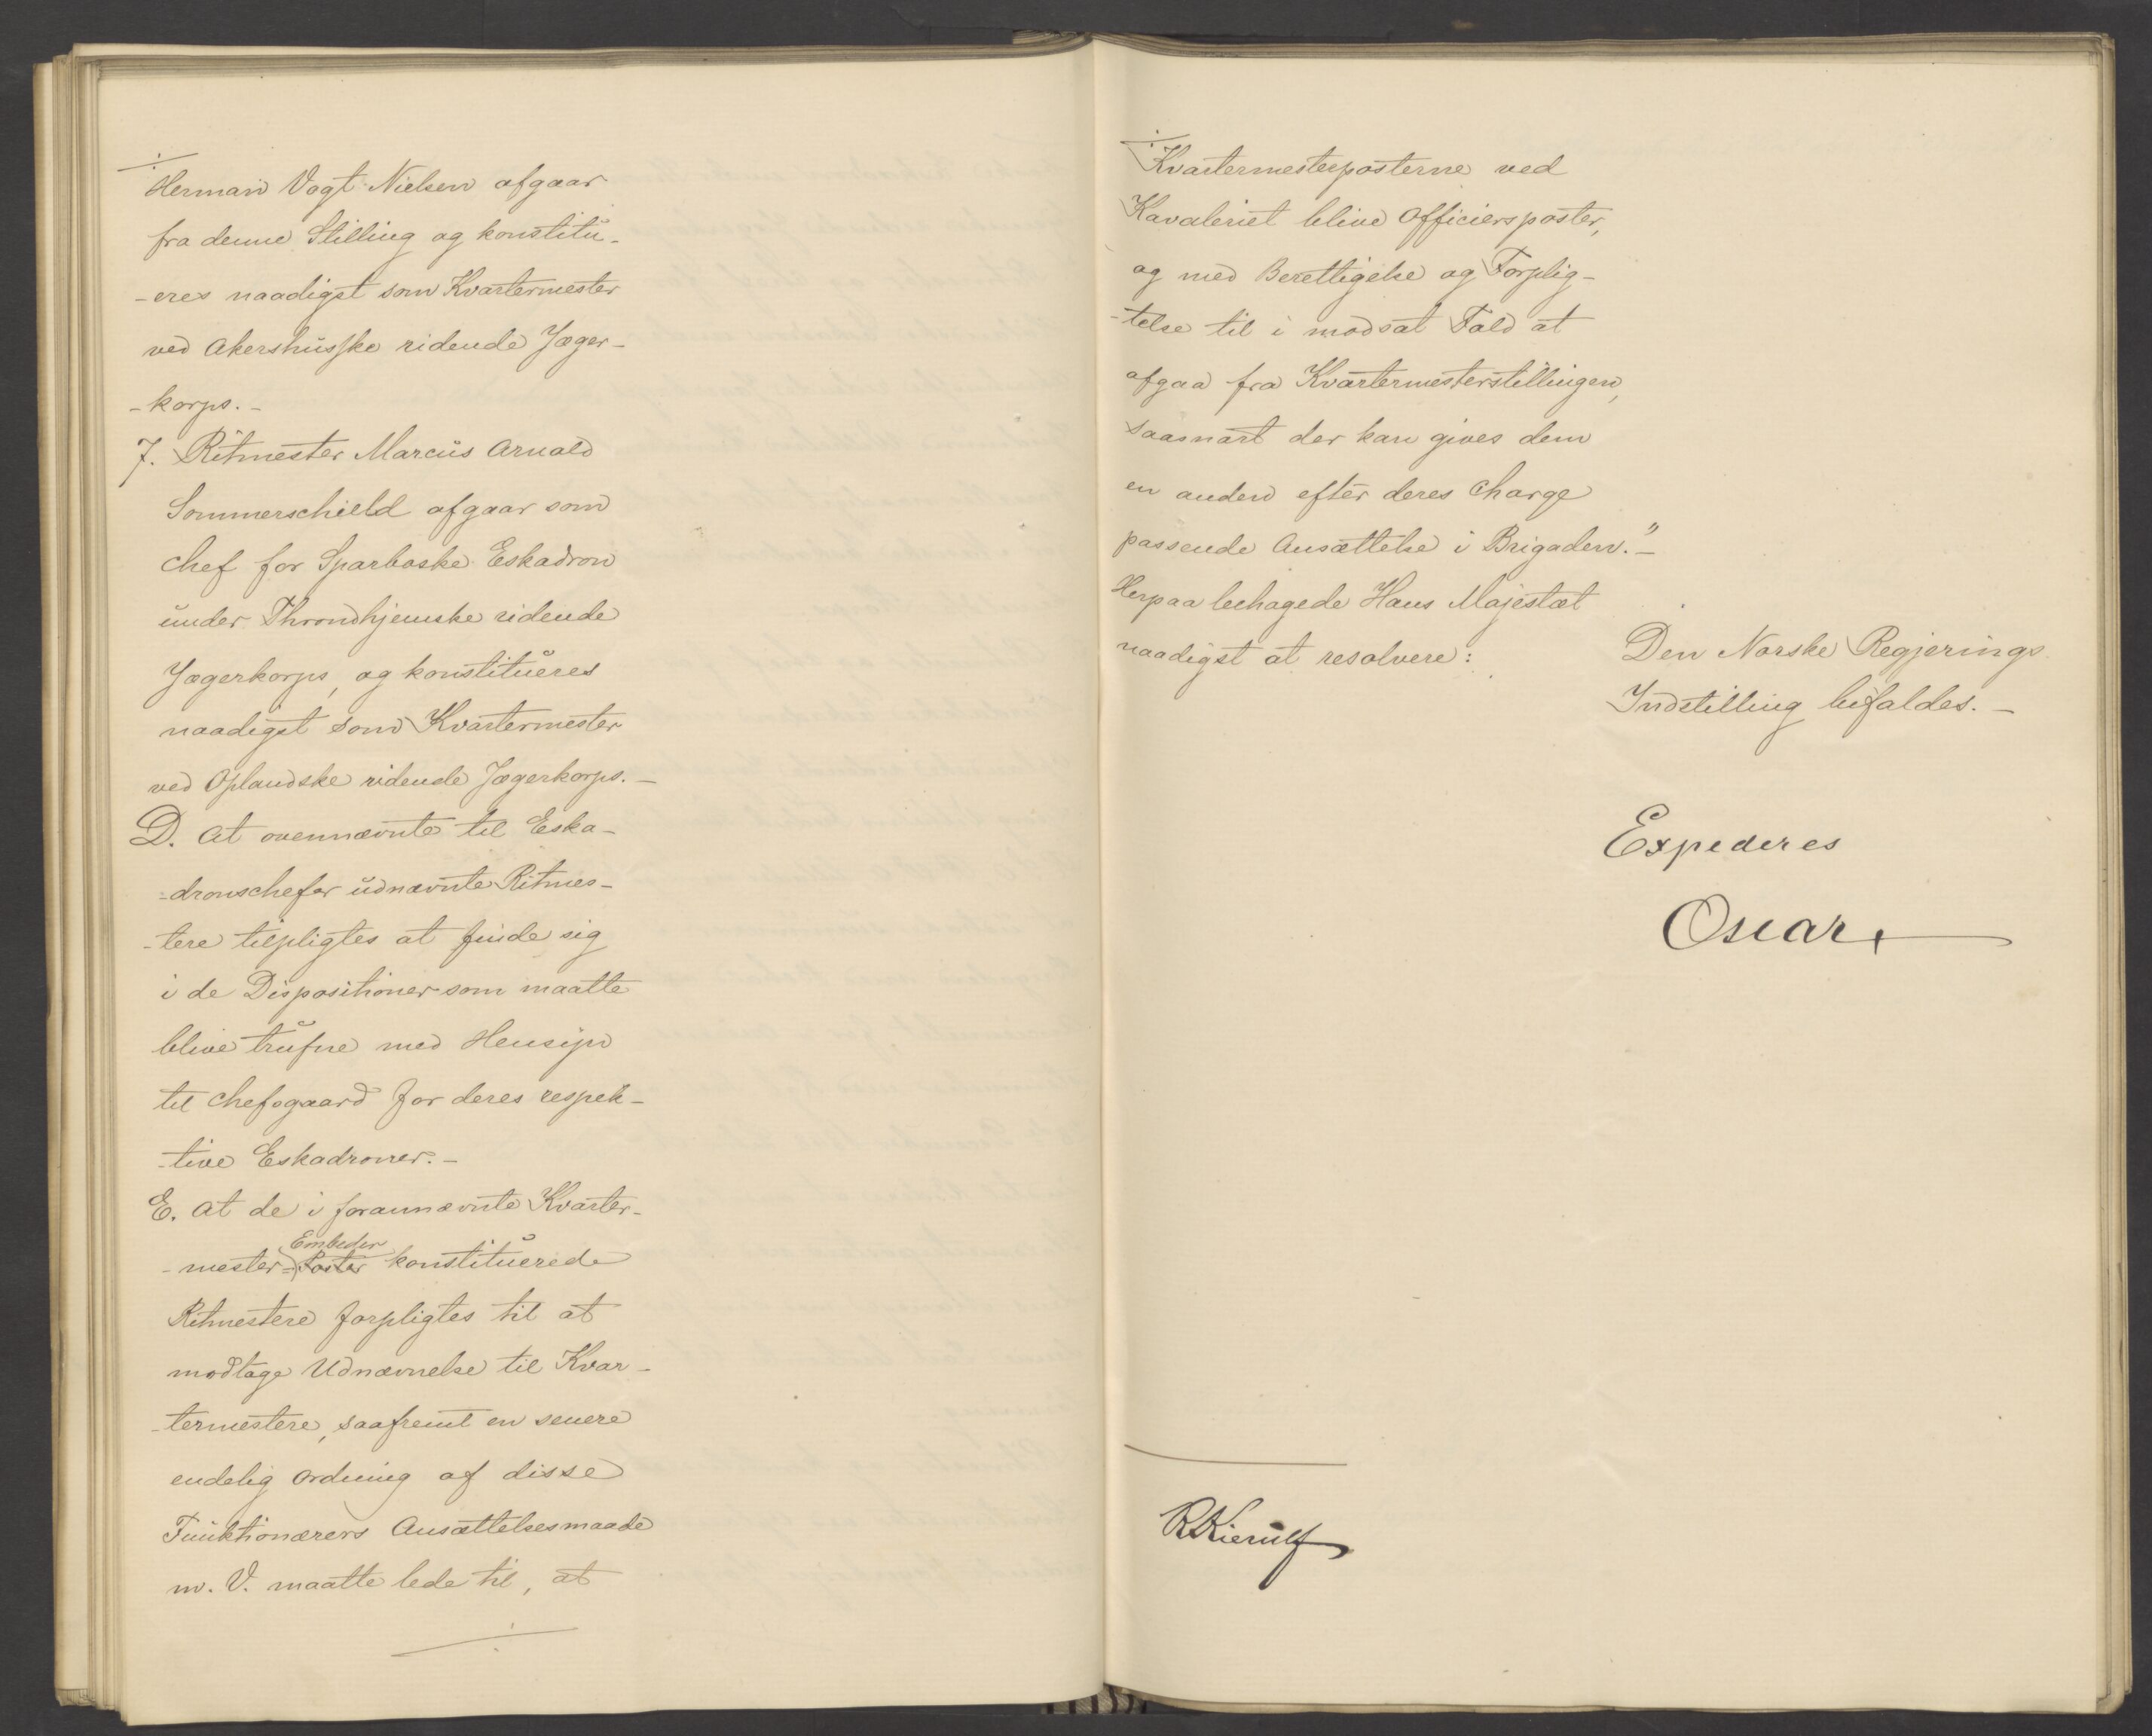 Herman Vogt Nielsen afgaar
fra denne Stilling og konstitu-
-eres naadigst som Kvartermester
ved Akershusske ridende Jæger-
-korps.-
7. Ritmester Marcus Arnald
Sommerschield afgaar som
Chef for Sparboske Eskadron
under Throndhjemske ridende
Jægerkorps, og konstitueres
naadigst som Kvartermester
ved Oplandske ridende Jægerkorps.-
D. At ovennævnte til Eska-
-dronschefer udnævnte Ritmes-
-tere tilpligtes at finde sig
i de Dispositioner som maatte
blive trufne med Hensyn
til Chefsgaard for deres respek-
-tive Eskadroner.-
E. At de i forannævnte Kvarter-
Embeder
-mester=Poster konstituerede
Ritmestere forpligtes til at
modtage Udnævnelse til Kvar-
-termestere, saafremt en senere
endelig Ordning af disse
Funktionærers Ansættelsesmaade
m. V. maatte lede til, at
Kvartermesterposterne ved
Kavaleriet blive Officiersposter,
og med Berettigelse og Forplig-
-telse til i modsat Fald at
afgaa fra Kvartermesterstillingen,
saasnart der kan gives dem
en anden efter deres Charge
passende Ansættelse i Brigaden."-
Herpaa behagede Hans Majestæt
naadigst at resolvere:
Den Norske Regjerings
Indstilling bifaldes.-
Expederes
Oscar
RKierulf